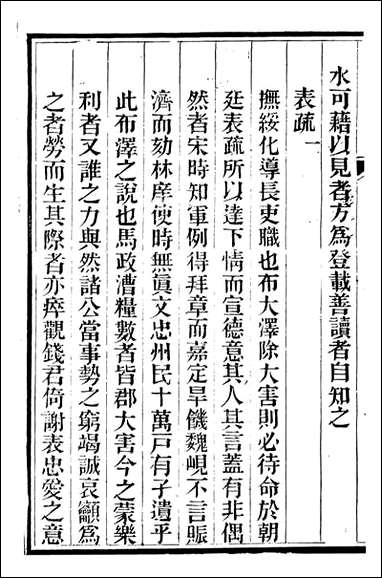 水可藉以見者方為登載善讀者自知之
表疏一
撫綏化導長吏職也布大澤除大害則必待命於朝
廷表疏所以達下情而宣德意其人其言蓋有非偶
然者宋時知軍例得拜章而嘉定旱饑魏峴不言賑
濟而劾林庠使時無眞文忠州民十萬戸有孑遺乎
此布澤之說也馬政漕糧數者皆郡大害今之蒙樂
利者又誰之力與然諸公當事勢之窮竭誠哀籲為
之者勞而生其際者亦瘁觀錢君倚謝表忠愛之意